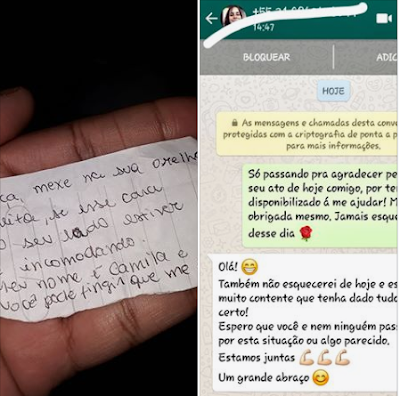 mexe na sua orelha
se esse cara
o seu lado estiver
incomodando.
nome é Camila e
você pode fingir que me
14:47
BLOQUEAR
ADIC
HOJE
As mensagens e chamadas desta conve
protegidas com a criptografia de ponta a p
para mais informações.
Só passando pra agradecer pe
seu ato de hoje comigo, por te
disponibilizado á me ajudar! M
obrigada mesmo. Jamais esque
desse dia 🌹
Olá! 😁
Também não esquecerei de hoje e es
muito contente que tenha dado tudo
certo!
Espero que você e nem ninguém pas
por esta situação ou algo parecido.
Estamos juntas 💪🏻💪🏻💪🏻
Um grande abraço 😊